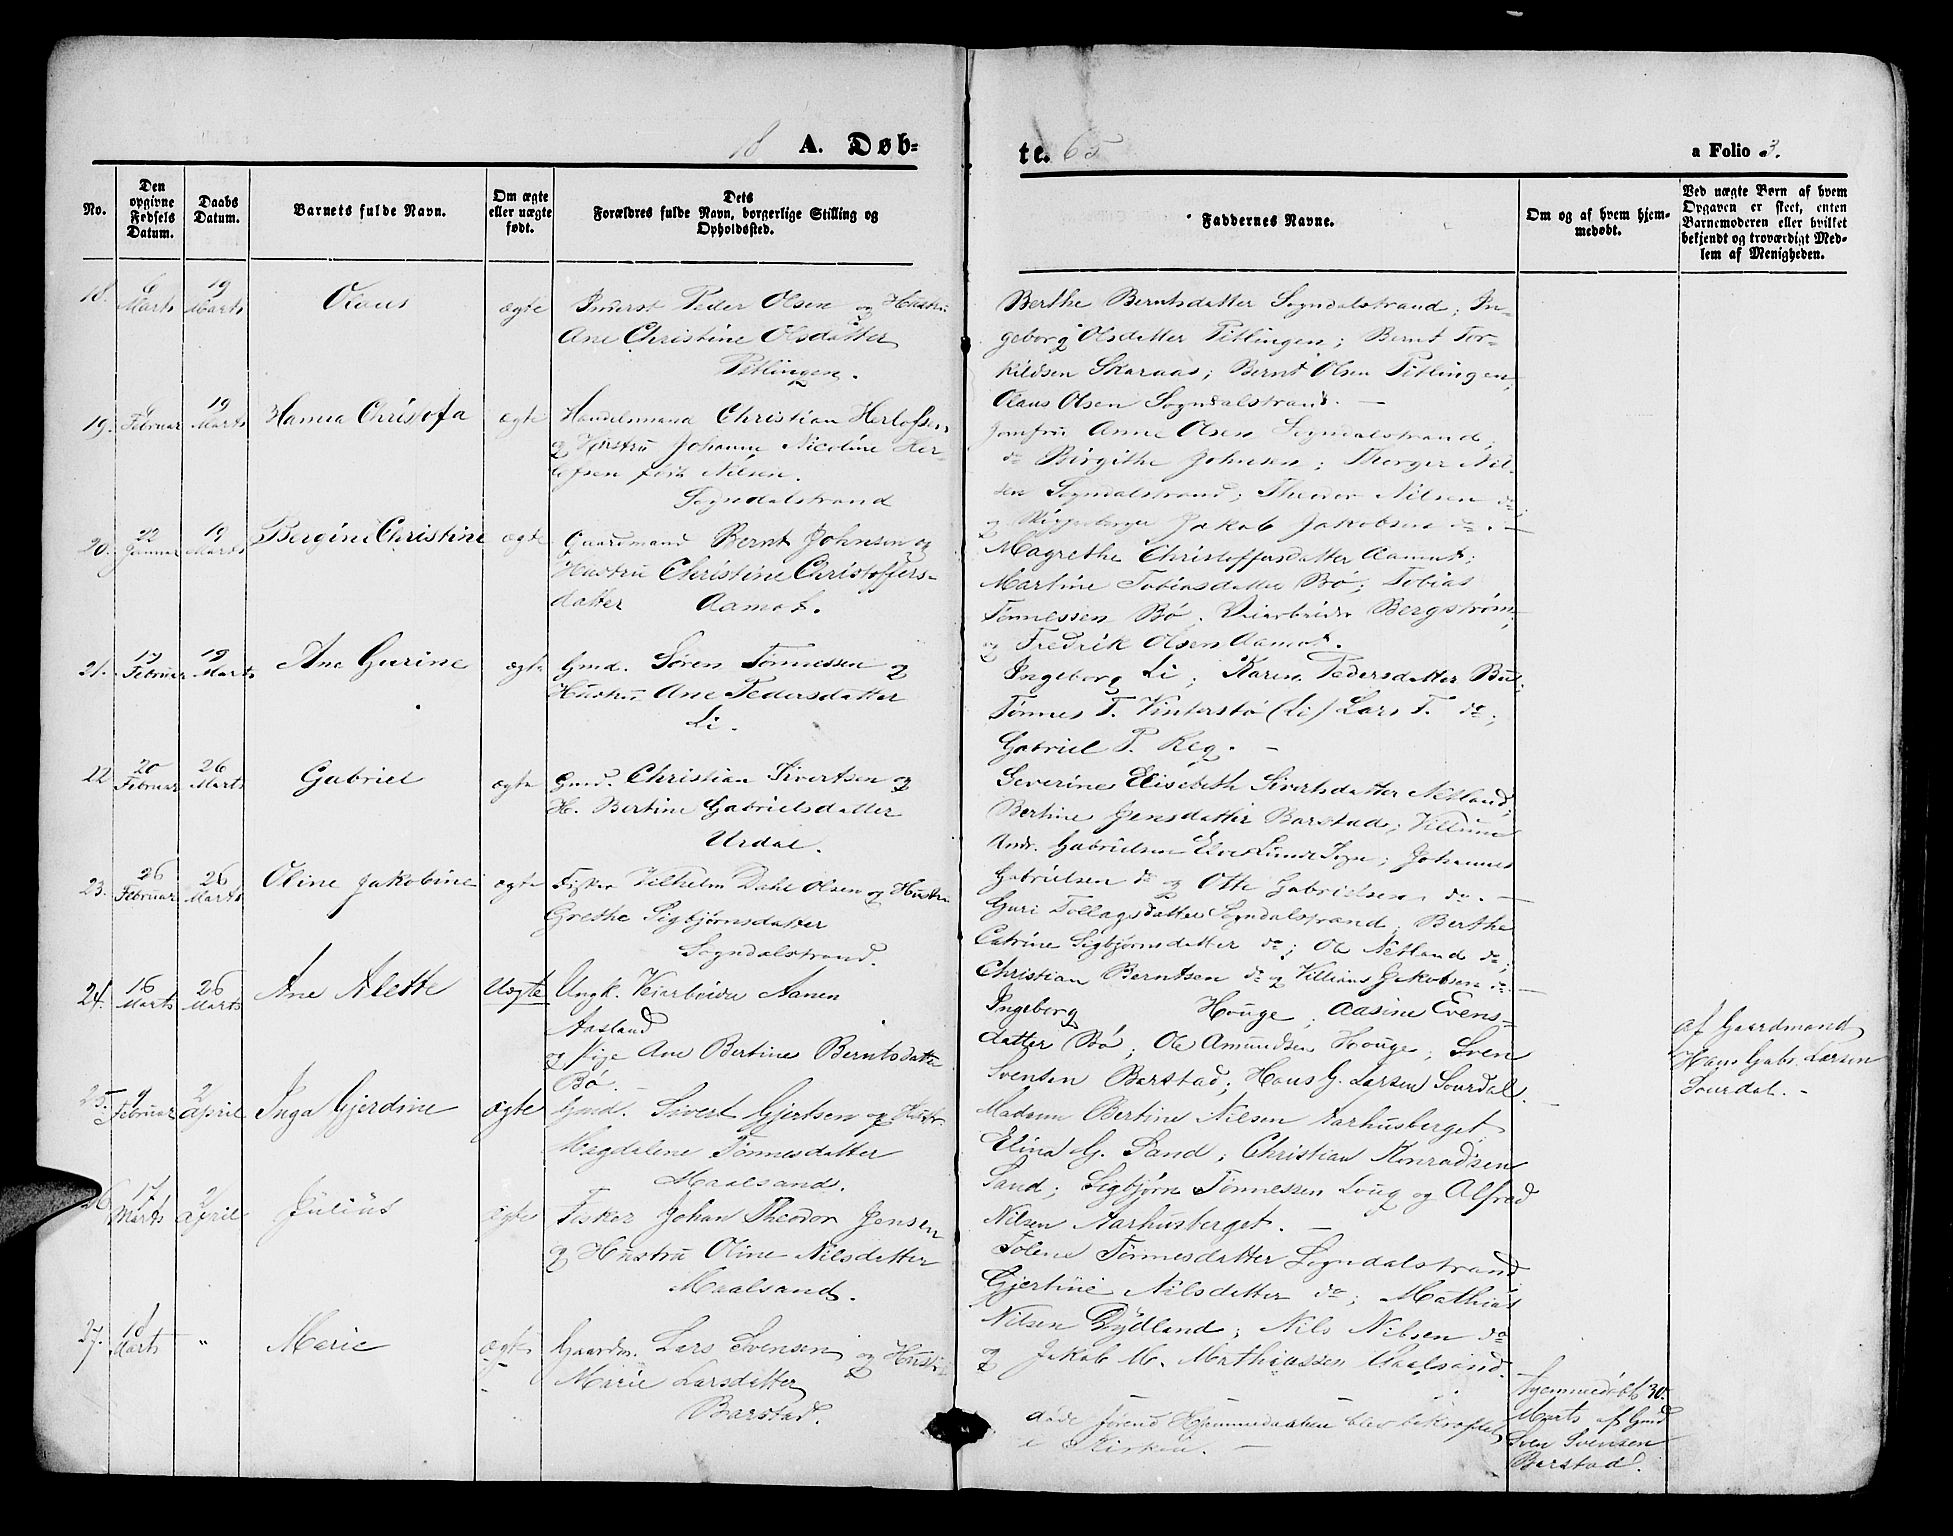 18 A. Døb=
te. 65
a Folio 3.
No.
Den opgivne Fødsels Datum.
Daabs Datum.
Barnets fulde Navn.
Om ægte eller uægte født.
Dets Forældres fulde Navn, borgerlige Stilling og Opholdssted.
Faddernes Navne.
Om og af hvem hjem-
medøbt.
Ved uægte Børn af hvem
Opgaven er skeet, enten
Barnemoderen eller hvilket
bekjendt og troværdigt Med-
lem af Menigheden.
18. 6 Marts 19 Marts Olaus ægte Peder Olsen og Hustru
Ane Christine Olsdatter
Pitlingen.
Berthe Berntsdatter Sogndalstrand; In-
geborg Olsdatter Pitlingen; Bernt Tor-
kildsen Skaraas; Bernt Olsen Pitlingen,
Olaus Olsen Sogndalstrand. —
19. Februar 19 Marts Hanna Christofa ægte Handelsmand Christian Herlofsen
og Hustru Johanne Nicoline Her-
lofsen født Nilsen.
Sogndalstrand
Jomfru Anne Olsen Sogndalstrand,
do Birgithe Johnsen; Nil-
sen Sogndalstrand; Theodor Nilsen do
og Jakob Jakobsen do. —
20. 22 Januar 19 Marts Bergine Christine ægte Gaardmand Bernt Johnsen og
Hustru Christine Christoffers-
datter Aamot.
Magrethe Christoffersdatter Aamot;
Martine Tobiasdatter Bø; Tobias
Tønnessen Bø, Veiarbeider Bergstrøm,
og Fredrik Olsen Aamot.
21. 19 Februar 19 Marts Ane Gurine ægte Gmd. Søren Tønnessen og
Hustru Ane Pedersdatter
Li.
Ingeborg Li; Karen Pedersdatter
Tønnes T. Vinterstø (Li) Lars T. do;
Gabriel P. —
22 20 Februar 26 Marts Gabriel ægte Gmd. Christian Sivertsen og
H. Bertine Gabrielsdatter
Urdal.
Severine Elisebeth Sivertsdatter Netland;
Bertine Jensdatter Barstad; Villum
Andr. Gabrielsen Johannes
Gabrielsen do og Otte Gabrielsen do. —
23. 26 Februar 26 Marts Oline Jakobine ægte Fisker Vilhelm Dahl Olsen og Hustru
Grethe Sigbjørnsdatter
Sogndalstrand.
Guri Tollagsdatter Sogndalstrand, Berthe
Catrine Sigbjørnsdatter do; Ole Netland do;
Christian Berntsen do og Villiam Jakobsen do. —
24. 16 Marts 26 Marts Ane Alette Uægte Ungk. Veiarbeider Aanen
Aasland
og Pige Ane Bertine Berntsdatter
Bø. —
Ingeborg Houge; Aasine Evens-
datter Bø; Ole Amundsen Houge; Sven
Svensen Barstad; Hans G. Larsen Sourdal. —
af Gaardmand
Hans Gabr. Larsen
Sourdal. —
25. 9 Februar 2 April Inga Gjerdine ægte Gmd. Sivert Gjertsen og Hustr.
Magdalene Tønnesdatter
Maalsand.
Madam Bertine Nilsen Aarhusberget
Elina G. Sand; Christian Konradsen
Sand; Sigbjørn Tønnessen Loug og Alfred
Nilsen Aarhusberget. —
26 17 Marts 2 April Julius ægte Fisker Johan Theodor Jensen
og Hustru Oline Nilsdatter
Maalsand.
Tolene Tønnesdatter Sogndalstrand
Gjertine Nilsdatter do; Mathias
Nilsen Dydland; Nils Nilsen do
og Jakob M. Mathiassen Maalsand.
27. 18 Marts " Marie ægte Gaardm. Lars Svensen og Hustru
Marie Larsdatter
Barstad.
døde førend Hjemmedaaben blev bekræftet
i Kirken. —
Hjemmedøbt 30.
Marts af Gmd
Sven Svensen
Barstad.